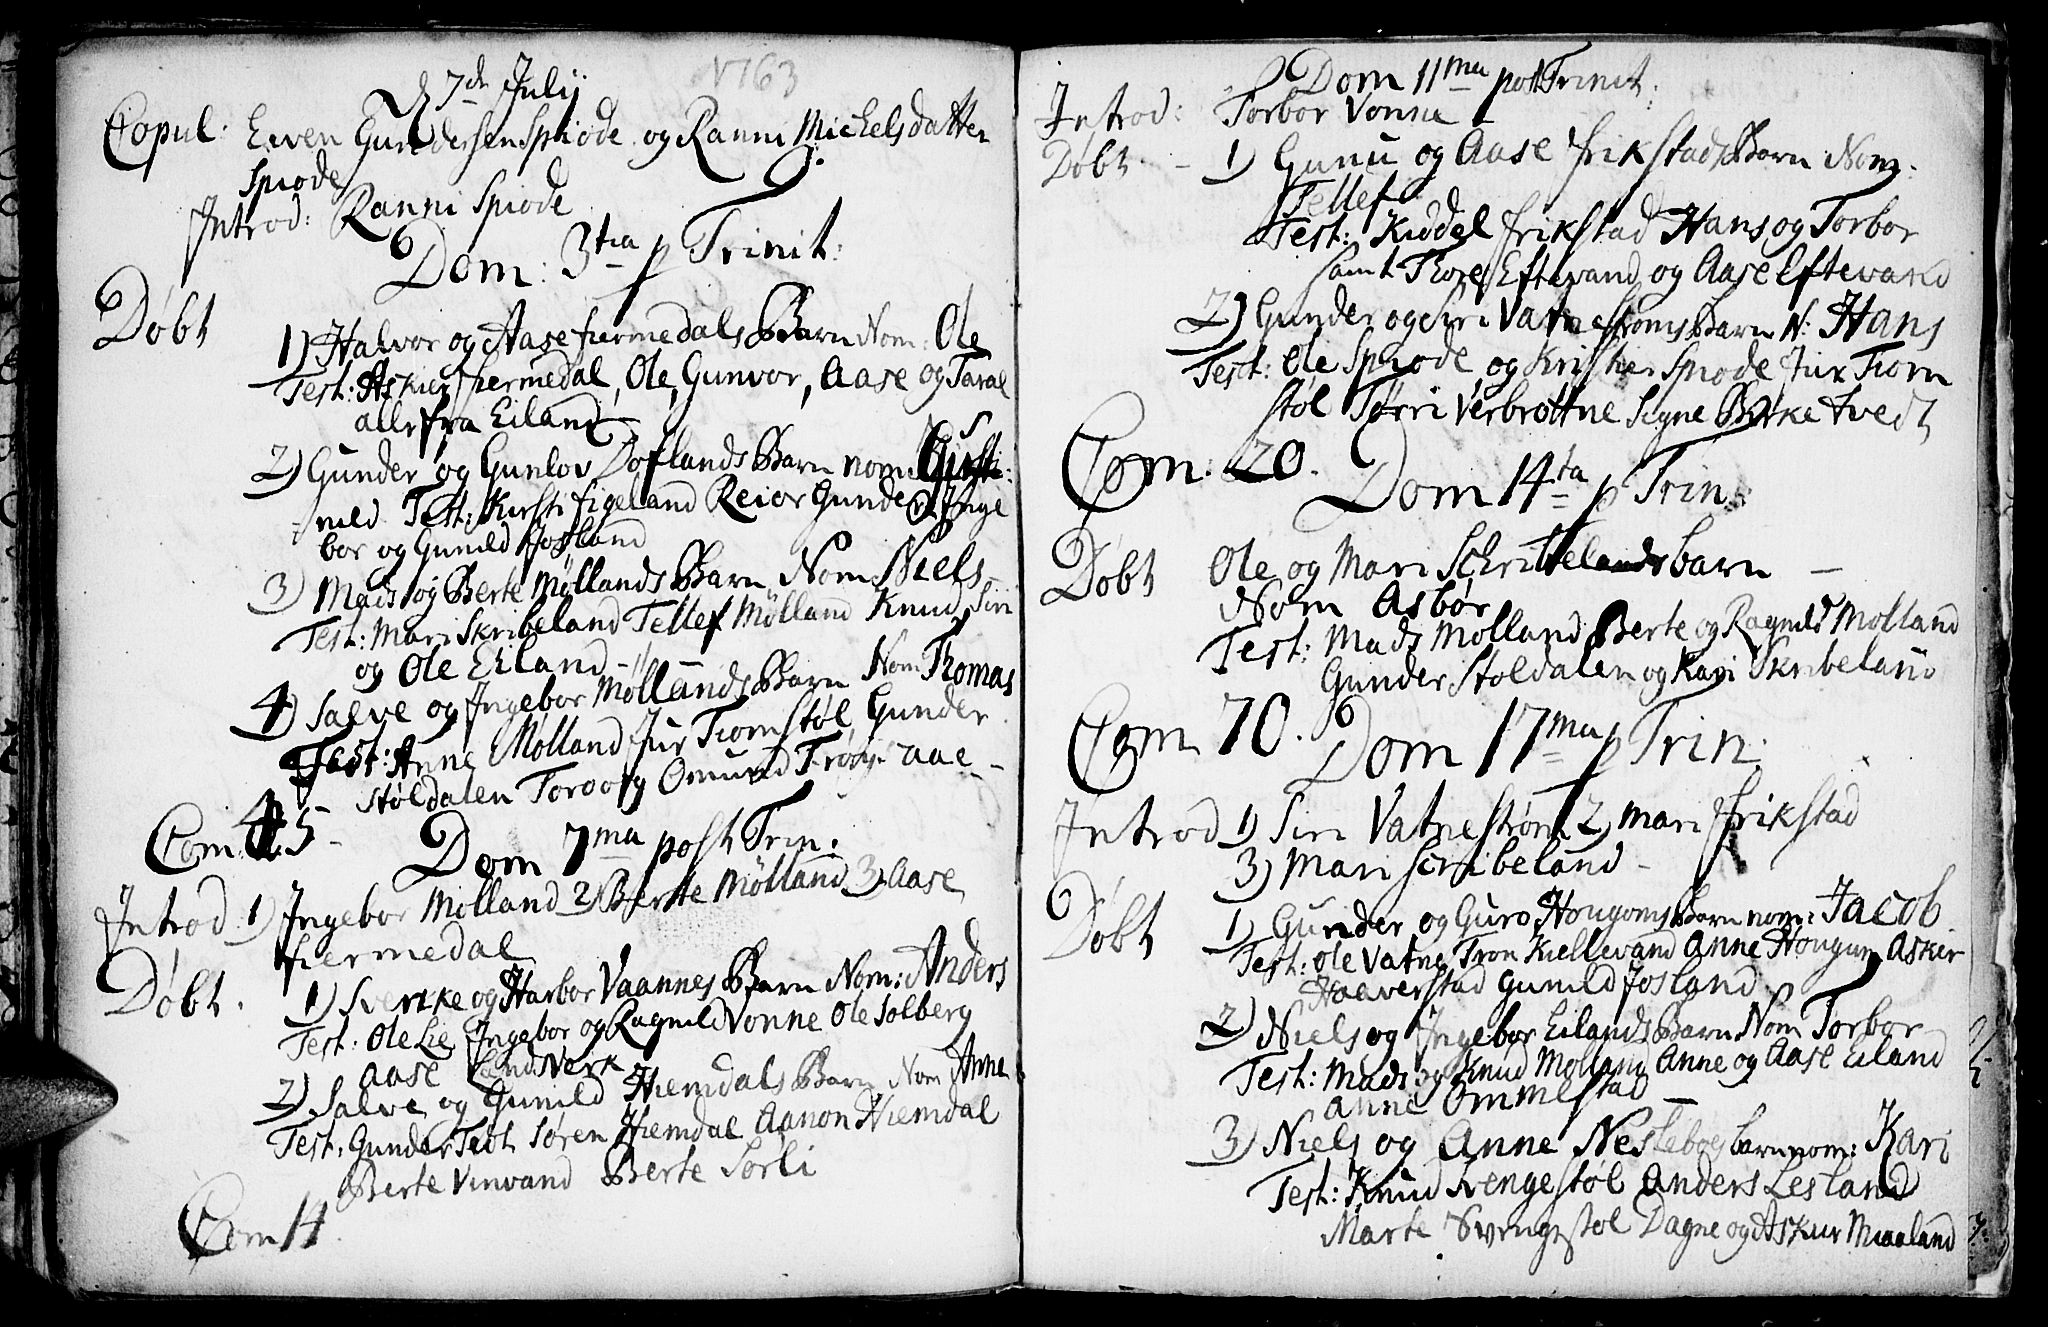 1763
D 7de Julij
Copul: Even Gundersen Spiode og Ranni Michelsdatter
Spiode
Introd: Ranni Spiode
Dom: 3tia p Trinit:
Døbt
1) Halvor og Aase fiermedals Barn Nom: Ole
Test: Askier fiermedal, Ole, Gunvor, Aase og Taral
alle fra Eiland
2) Gunder og Gunlov Doflands Barn nom:
nild Test: Kirsti figeland Reior Gunder Inge
bor og Gunild Josland
3) Mads og Berte Møllands Barn Nom Niels
Test: Mari Skribeland Tellef Mølland Knud, Siri
og Ole Eiland
4) Salve og Ingebor Møllands Barn Nom Thomas
Test: Anne Molland Jur Tiomstøl Gunder
Støldalen Toroog Omund Trøgsaae
Com: 45
Dom 7ma post Trin.
Introd. 1) Ingebor Molland 2) Berte Mølland 3) Aase
fiermedal
Døbt.
1) Svenke og Harbor Vaannes Barn Nom: Anders
Test: Ole Lie Ingebor og Ragnild Vonne Ole Solberg
Aase Landsverk
2) Salve og Gunild Hiemdals Barn Nom Anne
Test: Gunder Tvet Søren Hiemdal Aanon Hiemdal
Berte Vinvand Berte Sorli
Com 14.
Dom 11ma post Trinit:
Introd: Torbor Vonne
Døbt. 1) Gunu og Aase frikstads Barn Nom.
Tellef
Test: Kiddel frikstad Hans og Torbor
samt Thore Eftevand og Aase Eftevand
2) Gunder og Siri Vatnestrøms Barn N: Hans
Test: Ole Spiode og Kristen Spiode Jur Tiom
støl Tørri Verbrottne Signe Birketvedt
Com: 20.
Dom 14ta p Trin:
Døbt Ole og Mari Schribelands barn
Nom Asbør
Test: Mads Molland Berte og Ragnild Molland
Gunder Stoldalen og Kari Skribeland
Com 70.
Dom 17ma p Trin:
Introd 1) Siri Vatnestrøm 2) Mari frikstad
3) Mari scribeland
Døbt
1) Gunder og Guro Hougoms Barn nom: Jacob
Test: Ole Vatne Tron Kiellevand Anne Hougum Askier
Haaverstad Gunild Josland
2) Niels og Ingebor Eilands Barn Nom Torbor
Test: Mads og Knud Molland Anne og Aase Eiland
Anne Ommestad
3) Niels og Anne Neslebogs barn nom: Kari
Test: Knud Svengestøl Anders Lesland
Marte Svengestol Dagne og Askier Miaaland